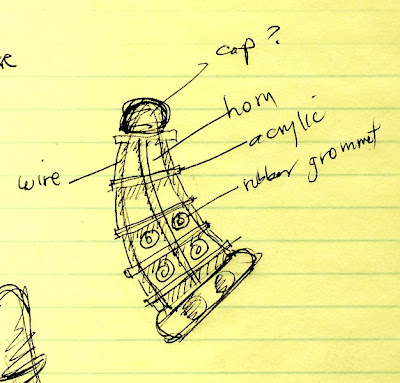 cap?
horn
acrylic
wire
rubber grommet